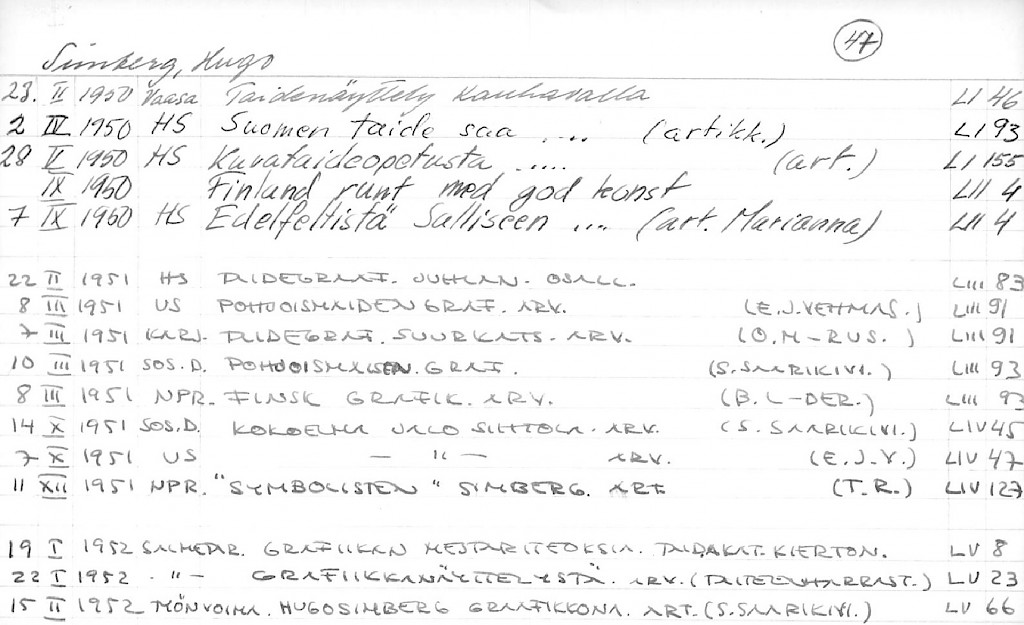 47
Simberg, Hugo
23. II 1950 Vaasa Taidenäyttely Kauhavalla LI 46
2 IV 1950 HS Suomen taide saa .... (artikk.) LI 93
28 V 1950 HS Kuvataideopetusta ..... (art.) LI 155
IX 1950 Finland runt med god konst LII 4
7 IX 1950 HS Edelfeltistä Salliseen .... (art. Marianna) LII 4
22 II 1951 HS TAIDEGRAAF. JUHLAN. OSALL. LIII 83
8 III 1951 US POHJOISMAIDEN GRAF. ARV. (E.J.VEHMAS.) LIII 91
7 III 1951 KARJ. TAIDEGRAF. SUURKATS. ARV. (O.M-RUS.) LIII 91
10 III 1951 SOS.D. POHJOISMAISEN. GRAF. (S.SAARIKIVI.) LIII 93
8 III 1951 NPR. FINSK GRAFIK. ARV. (B.L-DER.) LIII 93
14 X 1951 SOS.D. KOKOELMA JALO SIHTOLA. ARV. (S. SAARIKIVI.) LIV 45
7 X 1951 US — " — ARV. (E.J.V.) LIV 47
11 XII 1951 NPR. "SYMBOLISTEN" SIMBERG. ART. (T.R.) LIV 127
19 I 1952 GRAFIIKAN MESTARITEOKSIA. TAIDAKAT. KIERTON. LV 8
22 I 1952 - " - GRAFIIKKANÄYTTELYSTÄ. ARV. (TAITEENHARRAST.) LV 23
15 II 1952 HUGO SIMBERG GRAAFIKKONA. ART. (S.SAARIKIVI.) LV 66